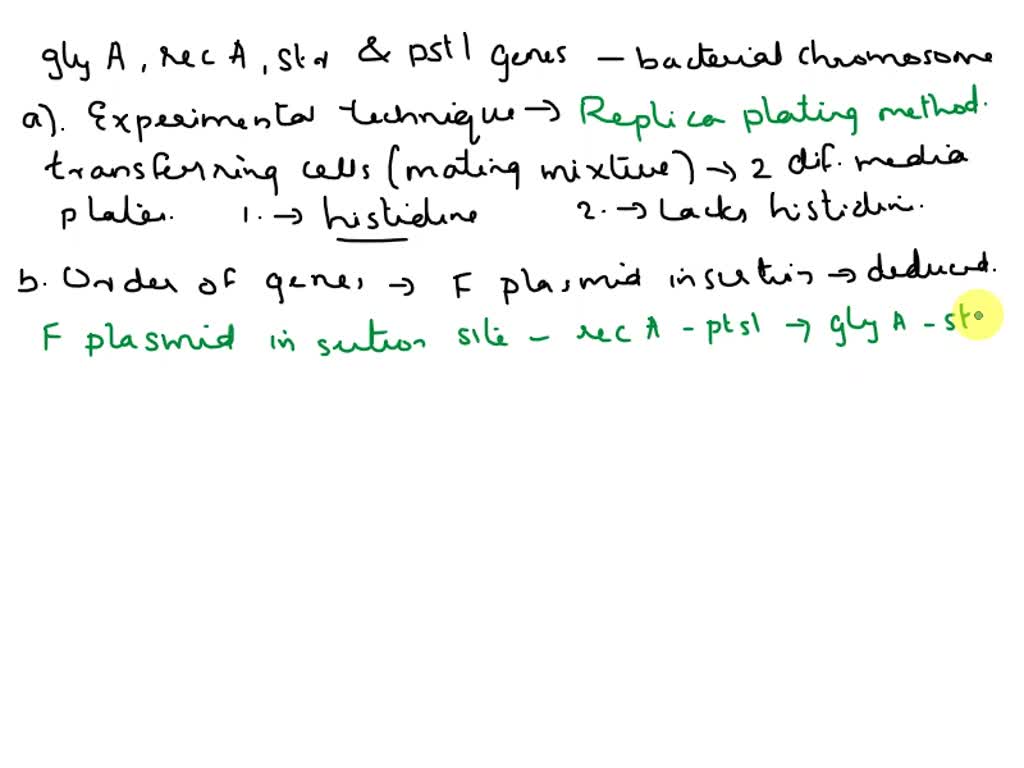 gly A, rec A, str & pst1 genes – bacterial chromosome
a). Experimental technique → Replica plating method.
transferring cells (mating mixture) → 2 dif. media
plates. 1. → histidine 2. → Lacks histidin.
b. Order of genes → F plasmid insertion → deduced.
F plasmid insertion site – rec A – pts1 → gly A – st